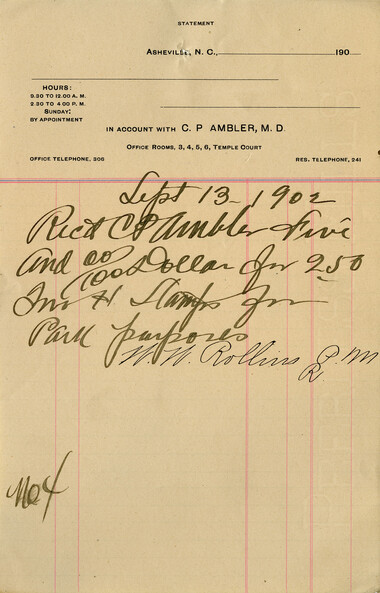 STATEMENT
ASHEVILLE, N. C., 190
HOURS:
9.30 TO 12.00 A. M.
2.30 TO 4.00 P. M.
SUNDAY:
BY APPOINTMENT
IN ACCOUNT WITH C. P AMBLER, M. D.
OFFICE ROOMS, 3, 4, 5, 6, TEMPLE COURT
OFFICE TELEPHONE, 206
RES. TELEPHONE, 241
Sept 13 - 1902
Rec'd CP Ambler Five
and 00/100 Dollar for 250
Two ct Stamps for
Park purposes
W. W. Rollins P. M
No 4